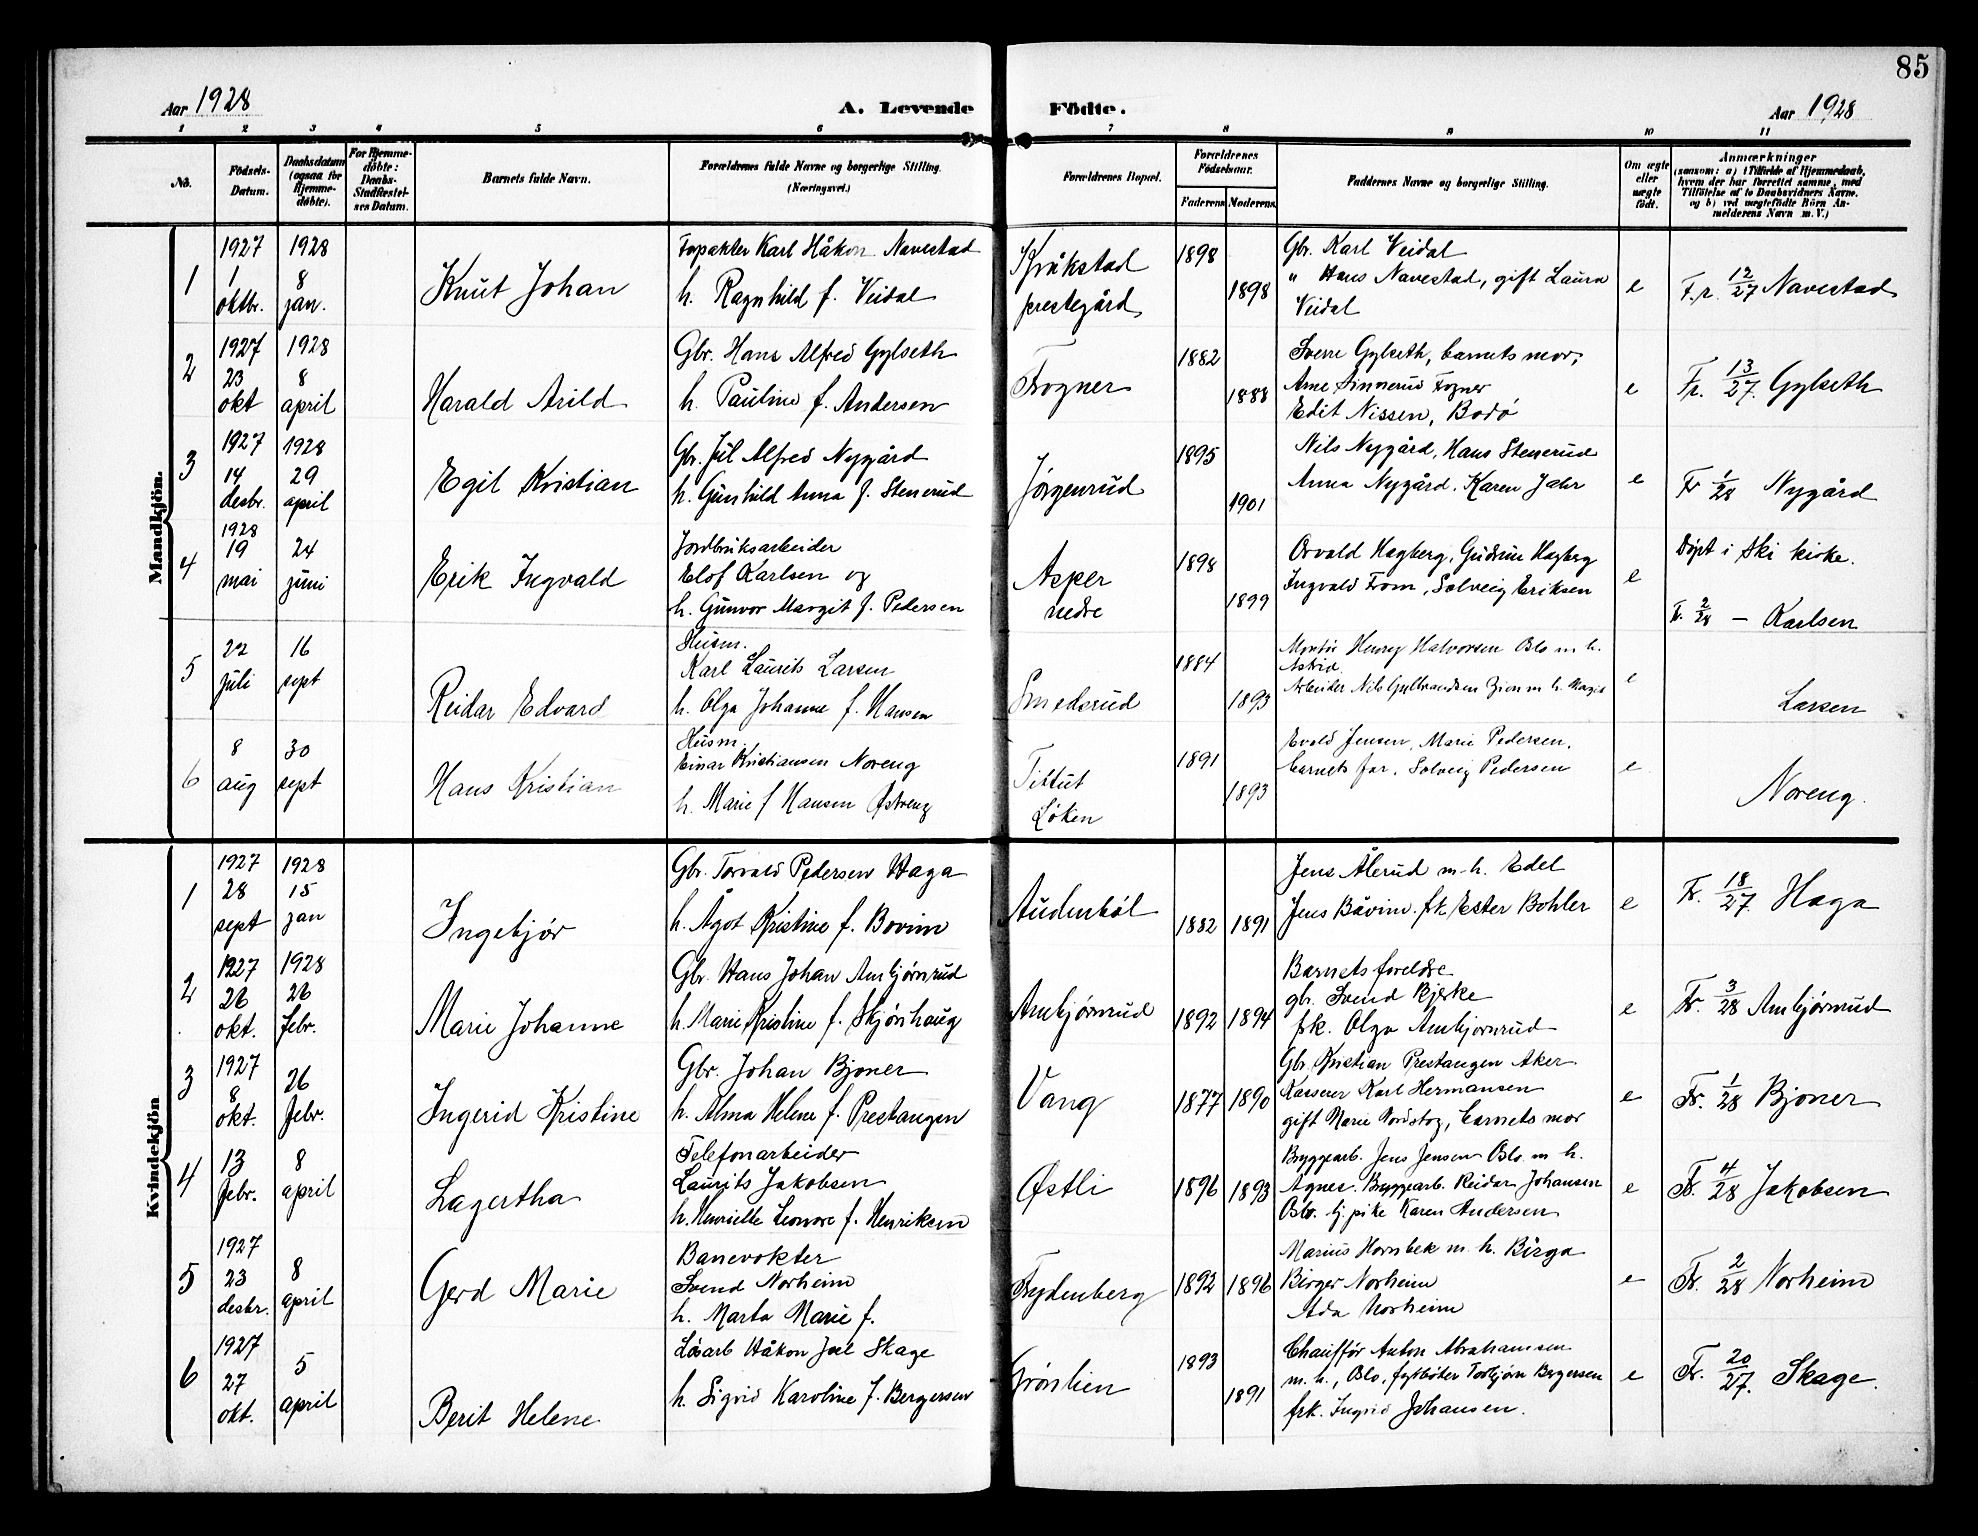 85
Aar 1928
A. Levende Födte.
Aar 1928
1 2 3 4 5 6 7 8 9 10 11
No.
Födsels-
Datum.
Daabsdatum
(ogsaa for
Hjemme-
döbte).
For Hjemme-
döbte:
Daabs-
Stadfæstel-
ses Datum.
Barnets fulde Navn.
Forældrenes fulde Navne og borgerlige Stilling.
(Næringsvei.)
Forældrenes Bopæl.
Forældrenes
Födselsaar.
Faderens Moderens
Faddernes Navne og borgerlige Stilling.
Om ægte
eller
uægte
födt.
Anmærkninger
(saasom: a) i Tilfælde af Hjemmedaab,
hvem der har forrettet samme, med
Tilföielse af to Daabsvidners Navne,
og b) ved uægtefödte Börn An-
melderens Navn m.V.)
Mandkjön.
1
1927
1
oktbr.
1928
8
jan.
Knut Johan
Forpakter Karl Håkon Navestad
h. Ragnhild f. Veidal
Kråkstad
prestegård
1898
1898
Gbr. Karl Veidal
" Hans Navestad, gift Laura
Veidal
e
F.r. 12/27 Navestad
2
1927
23
okt
1928
8
april
Harald Arild
Gbr. Hans Alfred Gylseth
h. Pauline f. Andersen
Frogner
1882
1888
Sverre Gylseth, barnets mor,
Arne Sinnerud Frogner
Edit Nissen, Bodø
e
Fr. 13/27. Gylseth
3
1927
14
desbr.
1928
29
april
Egil Kristian
Gbr. Jul Alfred Nygård
h. Gunhild Anna f. Stenerud
Jørgenrud
1895
1901
Nils Nygård, Hans Stenerud
Anna Nygård, Karen Jahr
e
Fr 1/28 Nygård
4
1928
19
mai
24
juni
Erik Ingvald
Jordbruksarbeider
Elof Karlsen og
h. Gunvor Margit f. Pedersen
Asper
nedre
1898
1899
Osvald Hagberg, Gudrun Hagberg
Ingvald From, Solveig Eriksen
e
Døpt i Ski kirke.
Fr. 2/28 — Karlsen
5
22
juli
16
sept
Reidar Edvard
Husm.
Karl Laurits Larsen
h. Olga Johanne f. Hansen
Smedsrud
1884
1893
Montør Henry Halvorsen Oslo m h.
Astrid
Arbeider Nils Gulbrandsen Zion m h. Margit
e
Larsen
6
8
aug
30
sept
Hans Kristian
Husm.
Einar Kristiansen Noreng
h. Marie f Hansen Østreng
Tittut
Løken
1891
1893
Evald Jensen, Marie Pedersen,
barnets far, Solveig Pedersen
e
Noreng.
Kvindekjön
1
1927
28
sept
1928
15
jan
Ingebjør
Gbr. Torvald Pedersen Haga
h. Ågot Kristine f. Bovim
Audenbøl
1882 1891
Jens Ålerud m. h. Edel
Jens Båvim. frk Ester Bohler
e
Fr. 18/27. Haga
2
1927
26
okt.
1928
26
febr.
Marie Johanne
Gbr. Hans Johan Ambjørnrud
h. Marie Kristine f. Skjønhaug
Ambjørnrud
1892 1894
Barnets foreldre
gbr. Svend Bjerke
frk. Olga Ambjørnrud
e
Fr. 3/28 Ambjørnrud
3
1927
8
okt.
26
febr.
Ingerid Kristine
Gbr. Johan Bjoner
h. Alma Helene f. Prestangen
Vang
1877 1890
Gbr. Kristian Prestangen Aker
Kasserer Karl Hermansen
gift Marie Nordstog, barnets mor
e
Fr. 1/28 Bjoner
4
13
febr.
8
april
Lagertha
Telefonarbeider
Laurits Jakobsen
h. Henriette Leonore f. Henriksen
Østli
1896 1893
Bryggearb. Jens Jensen Oslo m h.
Agnes. Bryggearb. Reidar Johansen
Oslo. tj.pike Karen Andersen
e
Fr. 4/28 Jakobsen
5
1927
23
desbr.
8
april
Gerd Marie
Banevokter
Svend Norheim
h. Marta Marie f.
Frydenberg
1892 1896
Marius Hornbek m. h. Birga
Birger Norheim
Ada Norheim
e
Fr. 2/28 Norheim
6
1927
27
okt.
5
april
Berit Helene
Løsarb Håkon Joel Skage
h. Sigrid Karoline f. Bergersen
Grønlien
1893
1891
Chauffør Anton Abrahamsen
m. h., Oslo, Torbjørn Bergersen
frk. Ingrid Johansen.
e
Fr. 20/27. Skage.